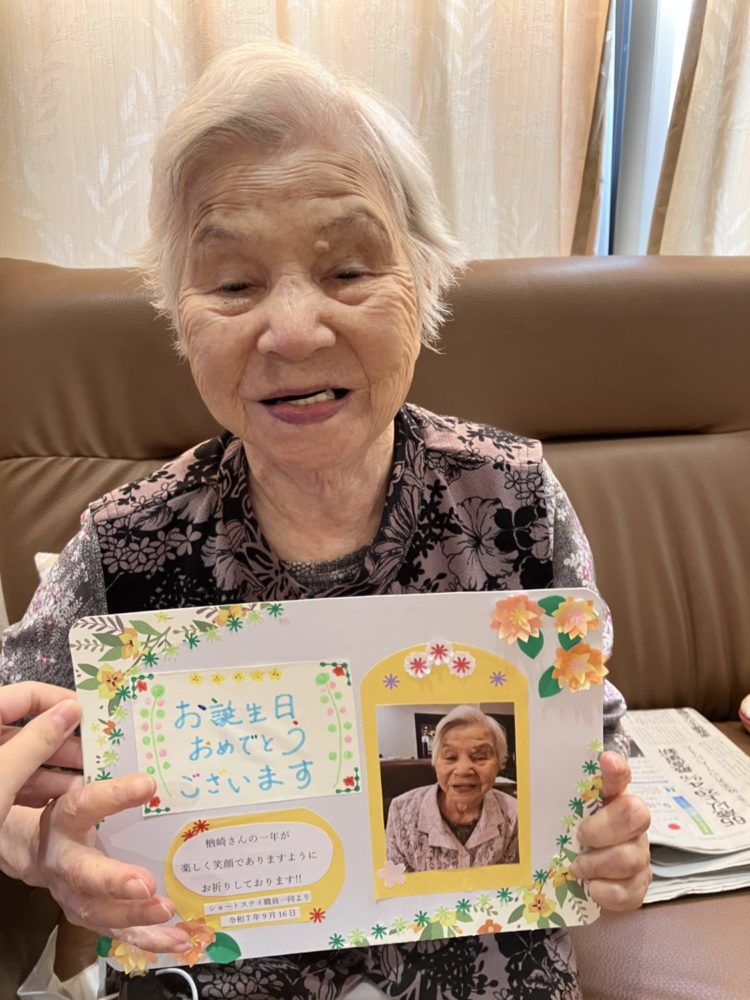 お誕生日
おめでとう
ございます
楢崎さんの一年が
楽しく笑顔でありますように
お祈りしております!!
ショートステイ職員一同より
令和7年9月16日